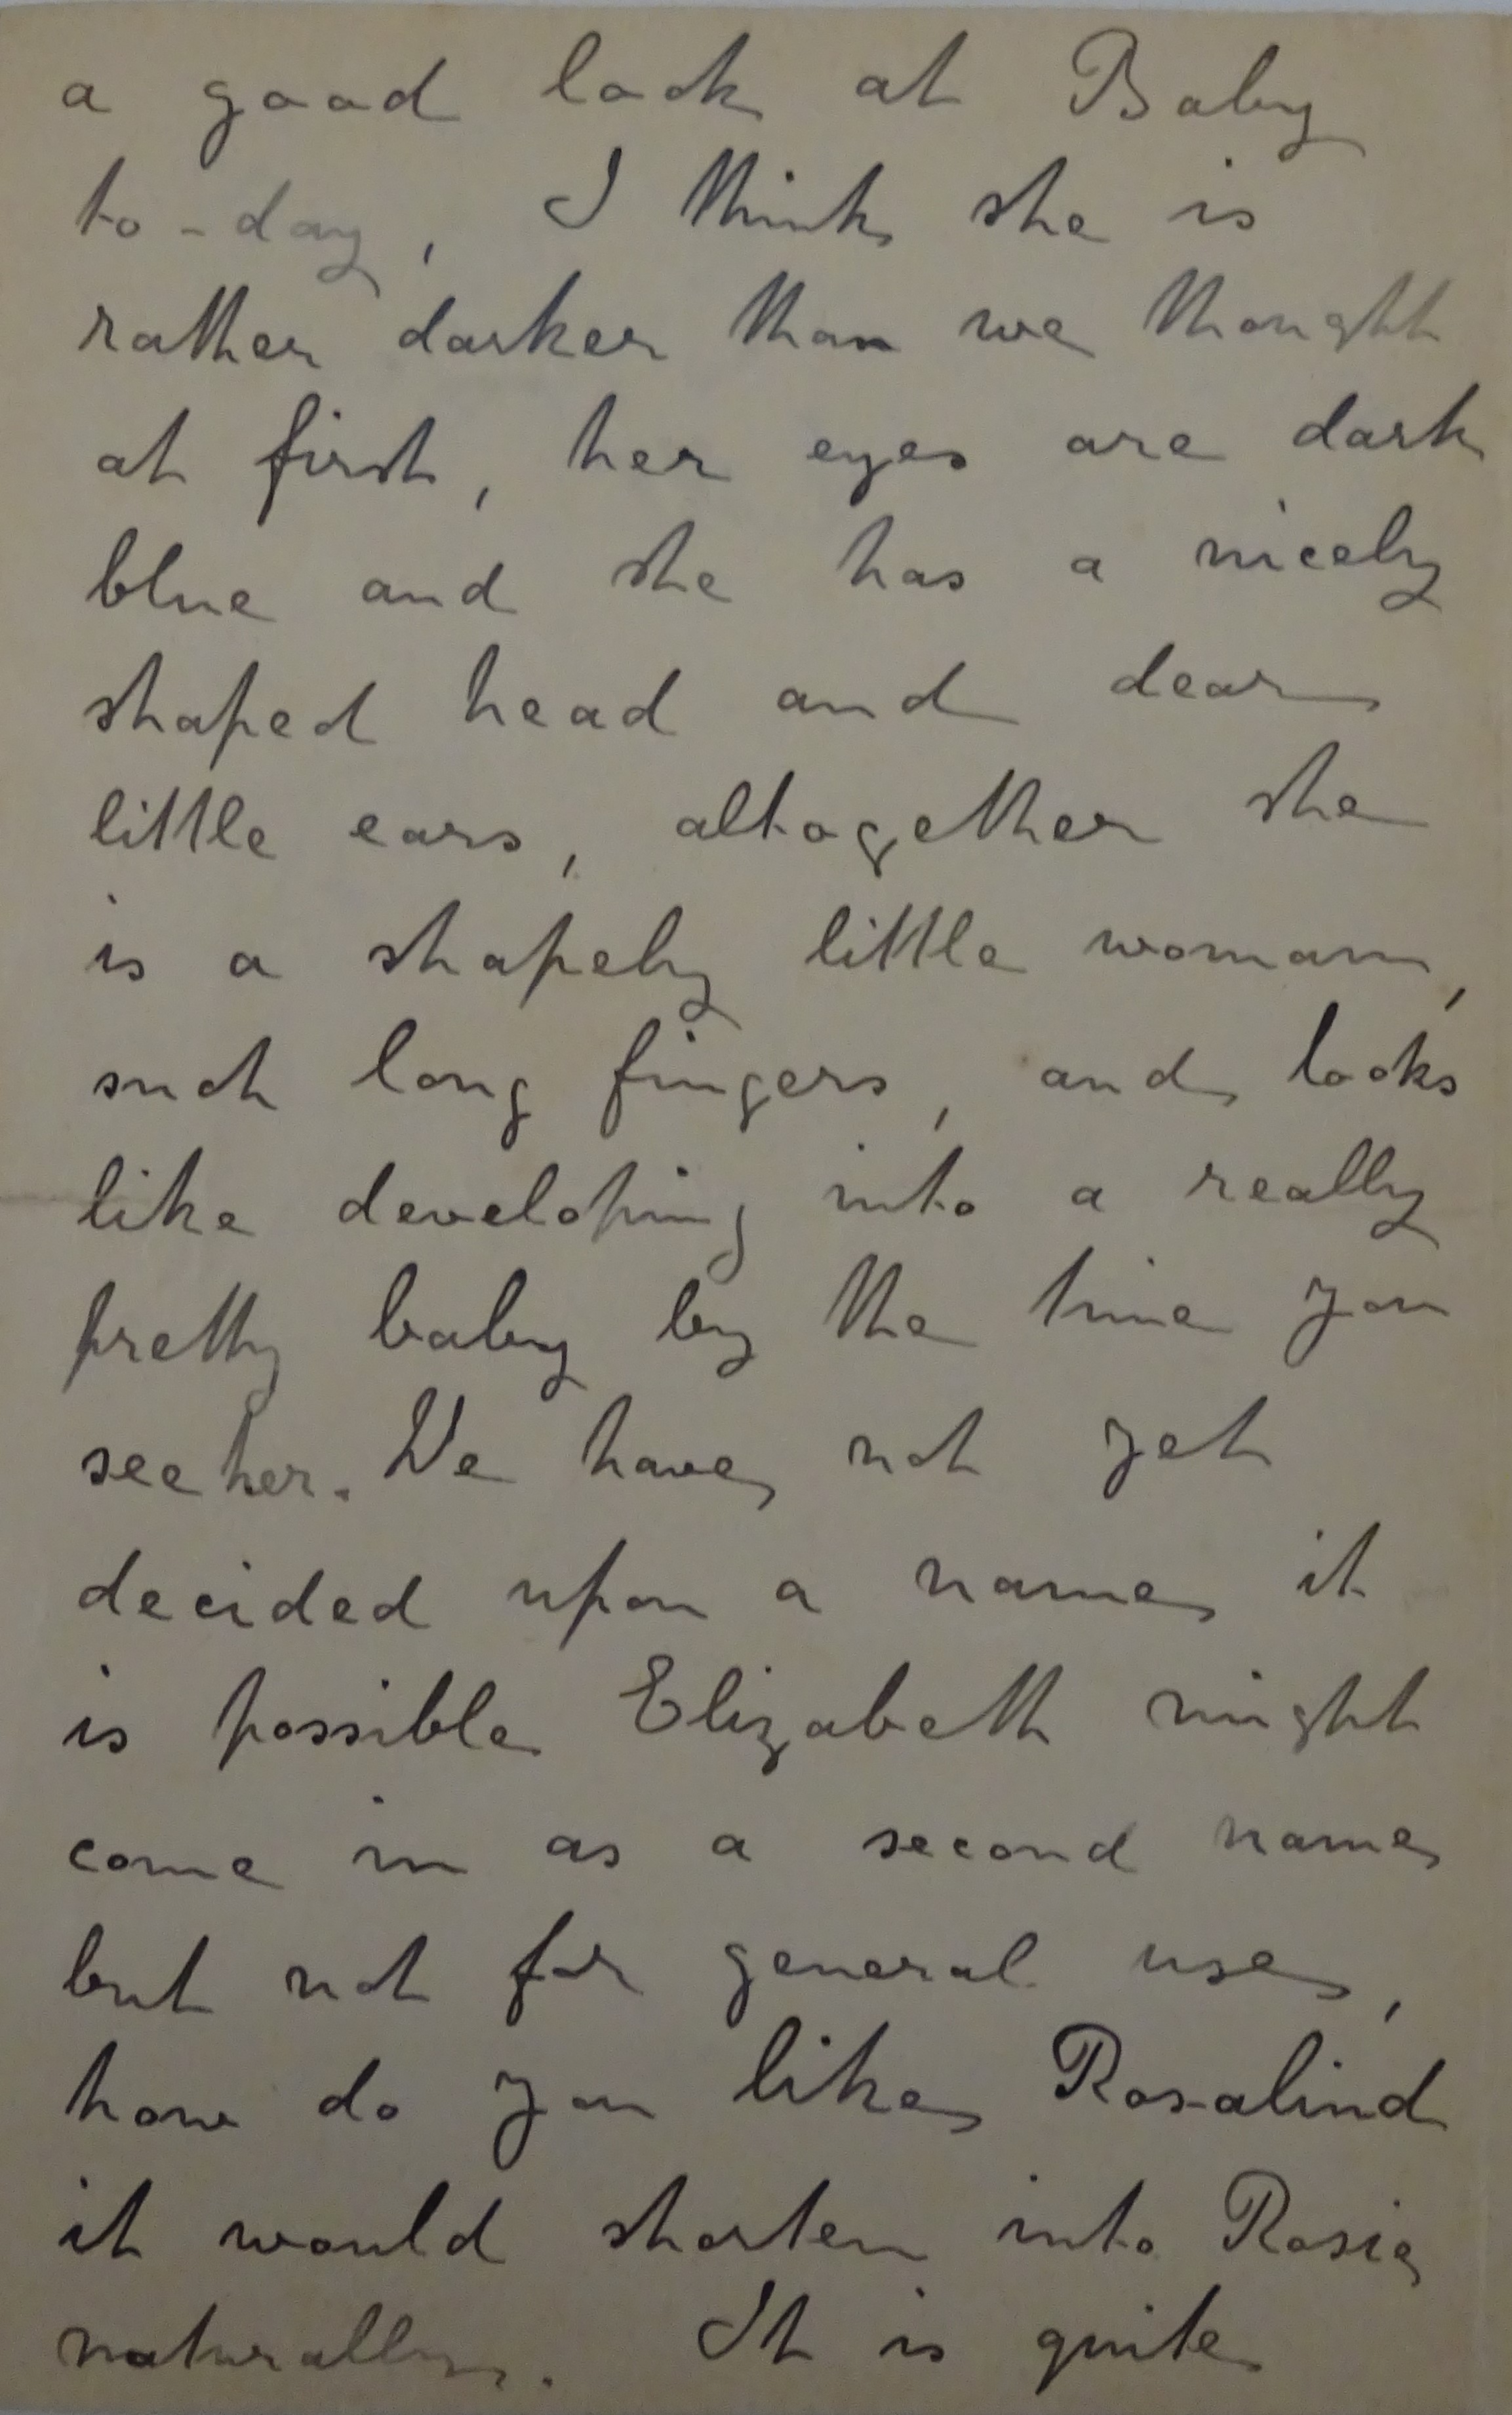 a good look at Baby
to-day, I think she is
rather darker than we thought
at first, her eyes are dark
blue and she has a nicely
shaped head and dear
little ears, altogether she
is a shapely little woman,
such long fingers, and looks
like developing into a really
pretty baby by the time you
see her. We have not yet
decided upon a name, it
is possible Elizabeth might
come in as a second name
but not for general use,
how do you like Rosalind
it would shorten into Rosie
naturally. It is quite